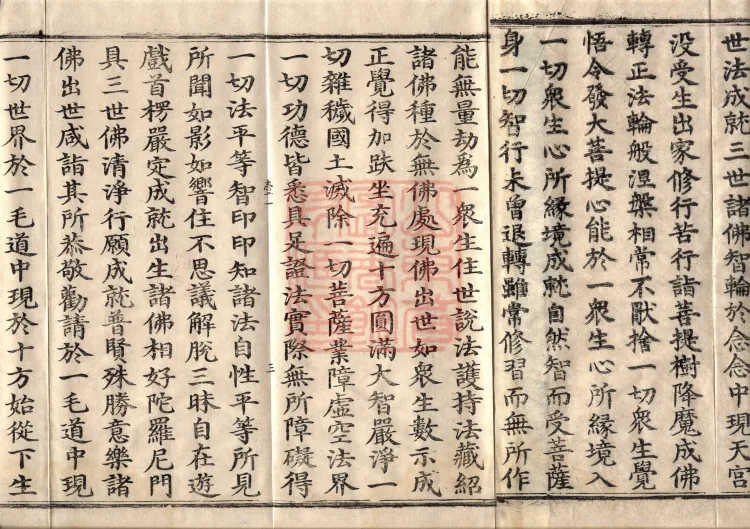 世法成就三世諸佛智輪於念念中現天宮
没受生出家修行苦行詣菩提樹降魔成佛
轉正法輪般涅槃相常不猒捨一切衆生覺
悟令發大菩提心能於一衆生心所緣境入
一切衆生心所緣境成就自然智而受菩薩
身一切智行未曾退轉雖常修習而無所作
能無量劫爲一衆生住世說法護持法藏紹
諸佛種於無佛處現佛出世如衆生數示成
正覺得加趺坐充遍十方圓滿大智嚴淨一
切雜穢國土滅除一切菩薩業障虛空法界
一切功德皆悉具足證法實際無所障礙得
壹一
三
一切法平等智印印知諸法自性平等所見
所聞如影如響住不思議解脫三昧自在遊
戲首楞嚴定成就出生諸佛相好陀羅尼門
具三世佛清淨行願成就普賢殊勝意樂諸
佛出世咸詣其所恭敬勸請於一毛道中現
一切世界於一毛道中現於十方始從下生